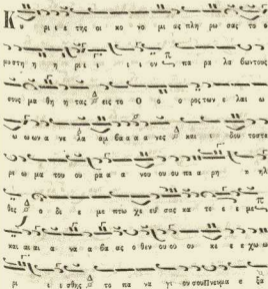 Κ υ ρι ε της οι κο νο μι ας πλη ρω σας το
ροστη η ρι ι ι ον πα ρα λα βωντους
σους μα θη η τας εις το Ο ο ο ρος των ε λαι ω
ω ω ω ν α νε λα αμ βα α α α νες και ι δου τοστε
ρε ω μα του ου ρα α α νου ου ου πα α ρη η ηλ
θες ο δι ε με πτω χε ευ σας κα τε ε με
και αι αι α να α βα ας ο θεν ου ου ου κ ε χω
ι σθης το πα να γι ον σου Πνευμα ε ξα